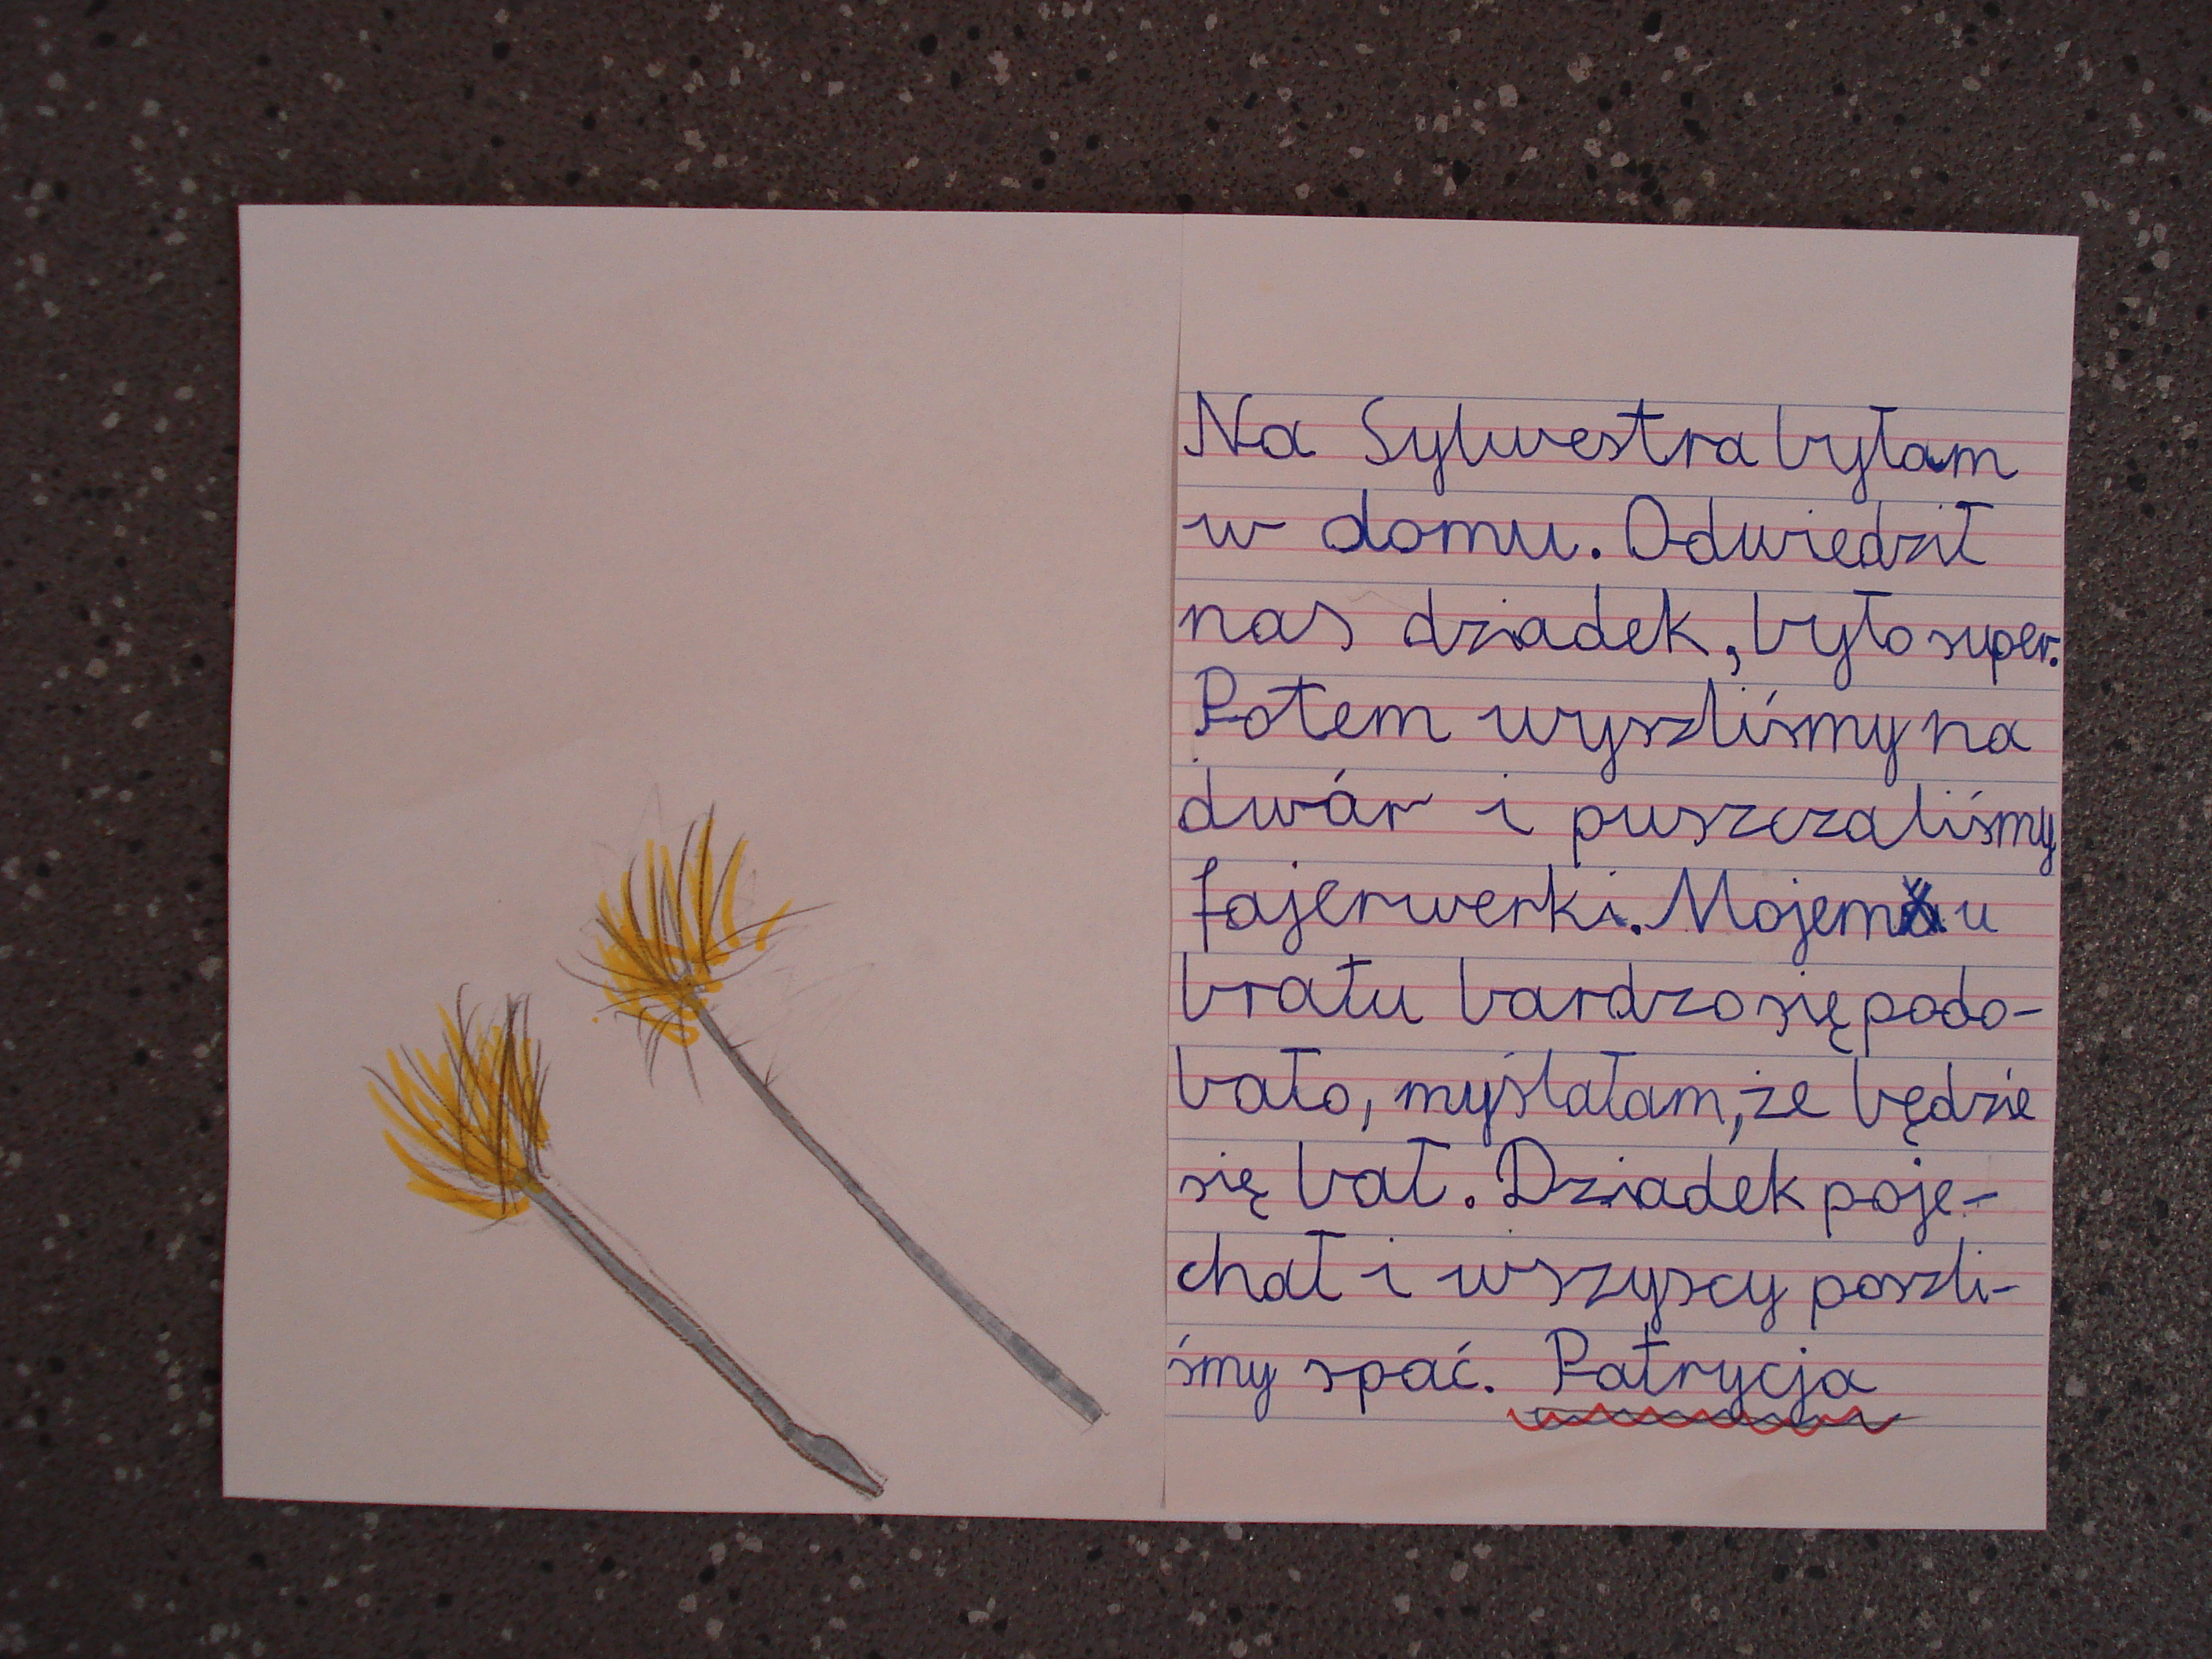 Na Sylwestra byłam
w domu. Odwiedził
nas dziadek, było super.
Potem wyszliśmy na
dwór i puszczaliśmy
fajerwerki. Mojemu
bratu bardzo się podo-
bało, myślałam, że będzie
się bał. Dziadek poje-
chał i wszyscy poszli-
śmy spać. Patrycja